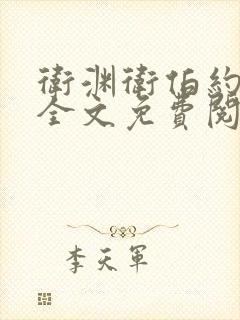 衛渊衛伯約
全文免費閱
李天軍